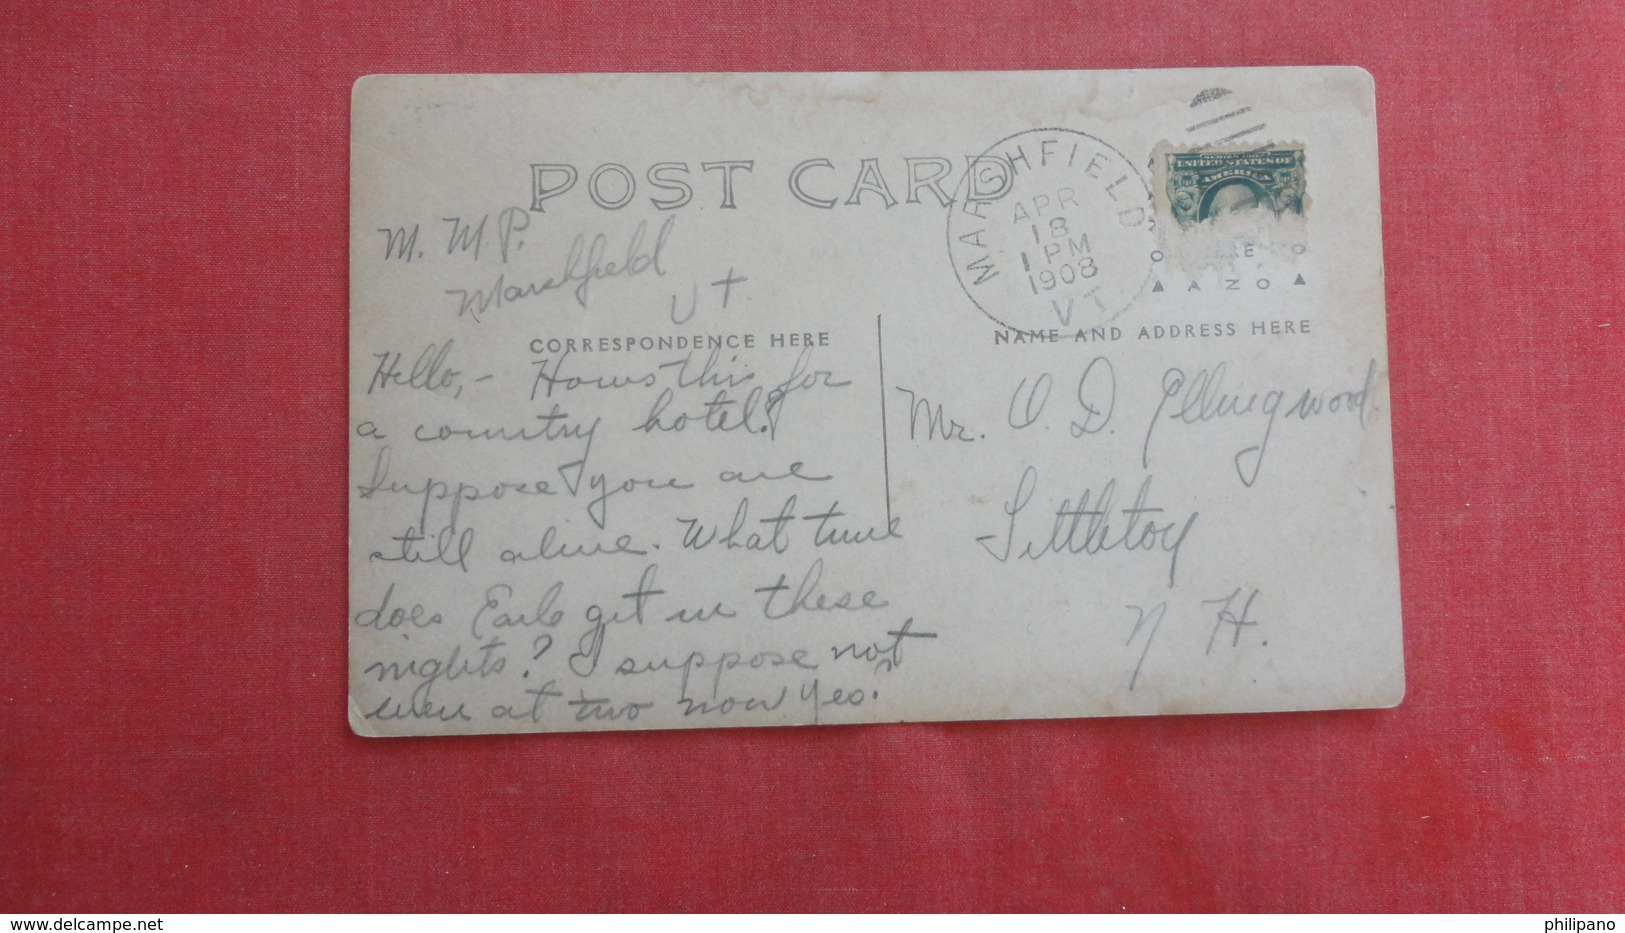 POST CARD
MARSHFIELD
APR
18
1 PM
1908
VT.
SERIES 1902
UNITED STATES OF
AMERICA
O RE O
▲ A Z O ▲
M. M P.
Marshfield
Vt.
CORRESPONDENCE HERE
NAME AND ADDRESS HERE
Hello, - Hows this for
a country hotel?
Suppose you are
still alive. What time
does Earle get in these
nights? I suppose not
even at two now yes.
Mr. O. D. Ellingwood.
Littleton
N H.
philipano